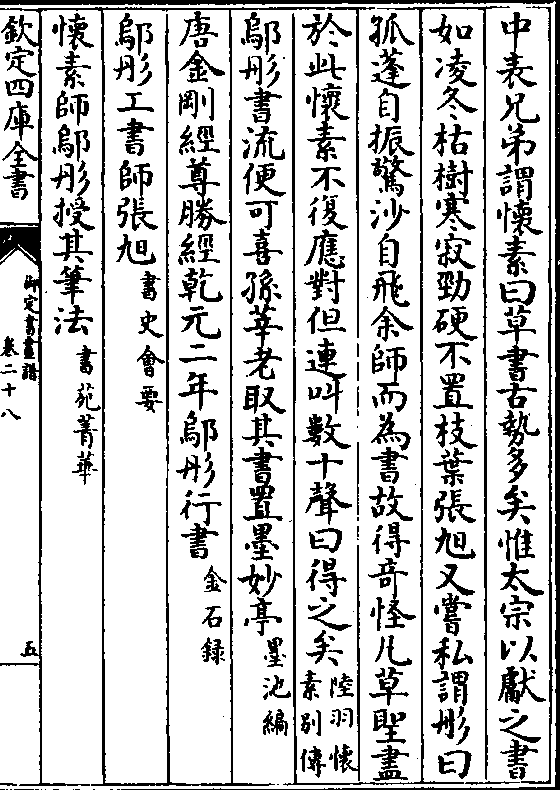 中表兄弟謂懷素曰草書古勢多矣惟太宗以獻之書
如凌冬枯樹寒寂勁硬不置枝葉張旭又嘗私謂彤曰
孤蓬自振驚沙自飛余師而為書故得奇怪凡草聖盡
於此懷素不復應對但連叫數十聲曰得之矣陸羽懷素别傳
鄔彤書流便可喜孫莘老取其書置墨妙亭墨池編
唐金剛經尊勝經乾元二年鄔彤行書金石録
鄔彤工書師張旭書史會要
懷素師鄔彤授其筆法書苑菁華
欽定四庫全書
御定書畫譜
卷二十八
五